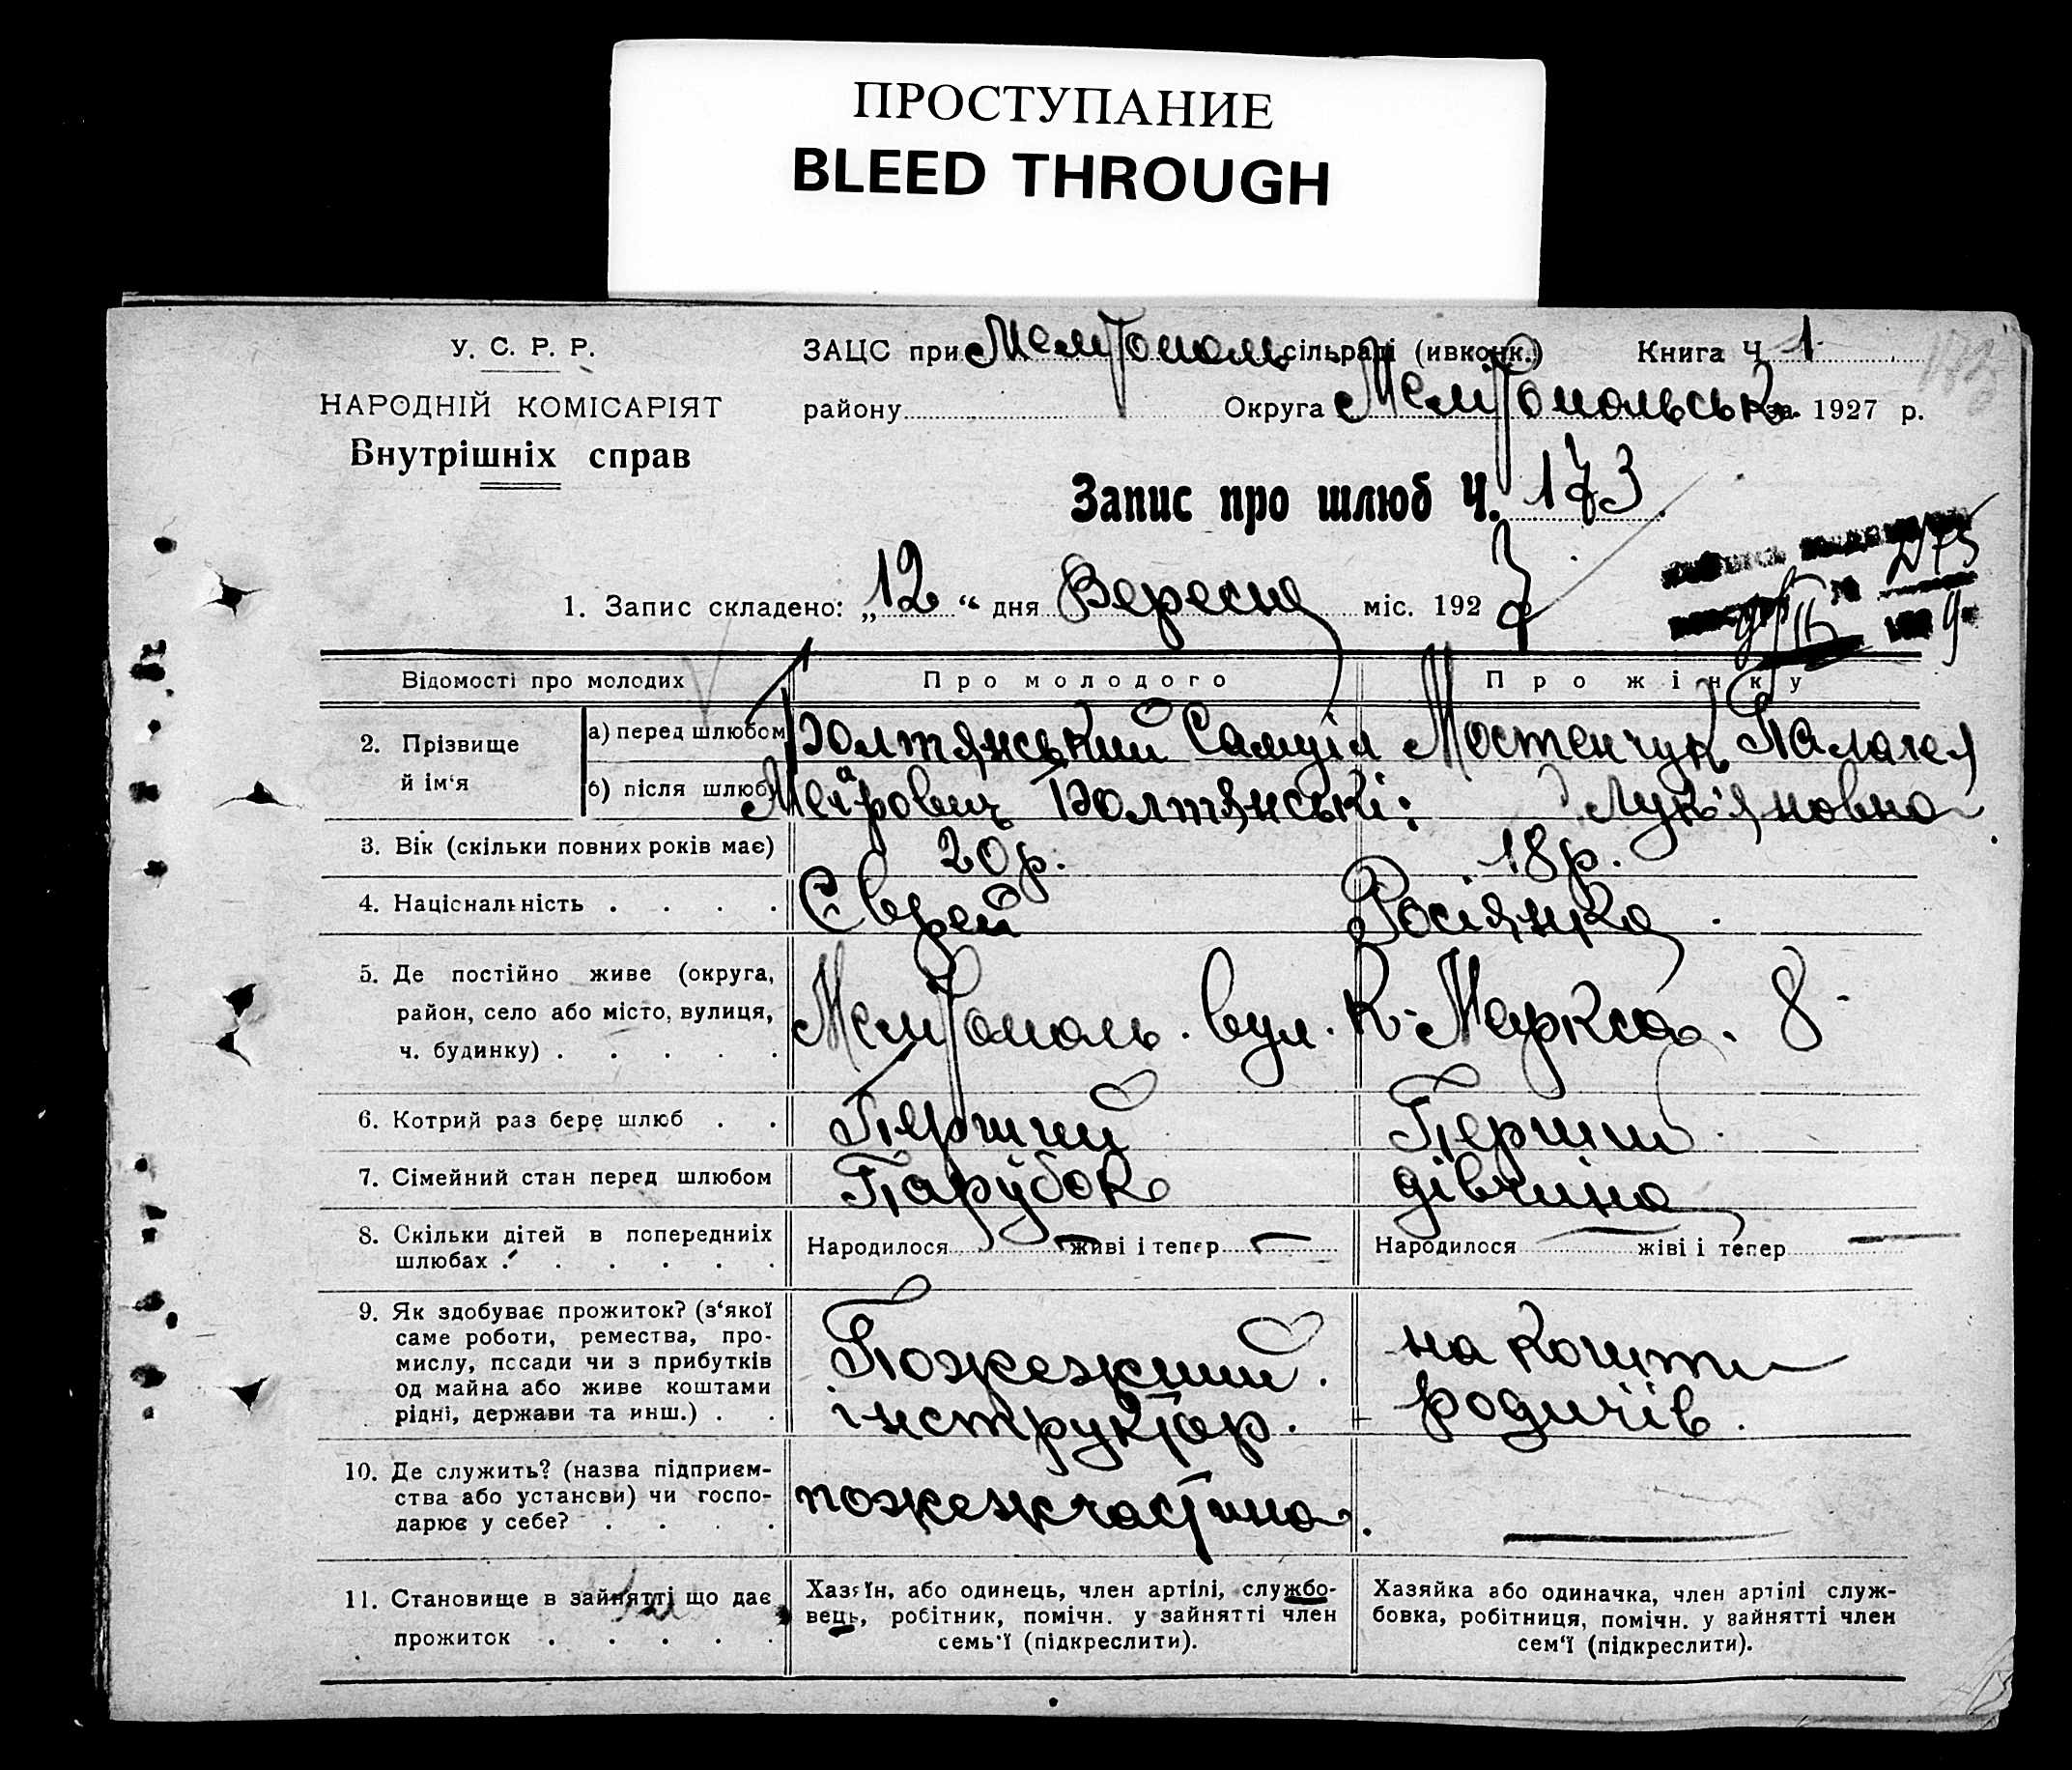 ПРОСТУПАНИЕ
BLEED THROUGH
У. С. Р. Р.
НАРОДНІЙ КОМІСАРІЯТ
Внутрішніх справ
ЗАЦС при Мелітополь сільраді (ивконк.) Книга Ч. 1
району Округа Мелітопольськ за 1927 р.
173
Запис про шлюб Ч. 173.
1. Запис складено: „12“ дня Вересня міс. 1927
Відомості про молодих
Про молодого
Про жінку
2. Прізвище й ім‘я
а) перед шлюбом
Болтянський Самуіл
Мостенчук Палагея
б) після шлюбу
Меєрович Болтянські;
Лук'яновна
3. Вік (скільки повних років має)
20 р.
18 р.
4. Національність . . . .
Єврей
Росіянка.
5. Де постійно живе (округа,
район, село або місто, вулиця,
ч. будинку) . . . . .
Мелітополь. вул. К. Маркса. 8
6. Котрий раз бере шлюб . .
Перший
Перший
7. Сімейний стан перед шлюбом
Парубок
дівчина
8. Скільки дітей в попередниіх
шлюбах . . . . . .
Народилося — живі і тепер —
Народилося — жіві і тепер —
9. Як здобуває прожиток? (з‘якої
саме роботи, ремества, про-
мислу, пссади чи з прибутків
од майна або живе коштами
рідні, держави та инш.) . .
Пожежний.
інструктор.
на кошти
родичів.
10. Де служить? (назва підприєм-
ства або устансви) чи госпо-
дарює у себе? . . . .
пожежчастина.
—
11. Становище в зайнятті що дає
прожиток . . . . .
Хазяїн, або одинець, член артілі, службо-
вець, робітник, помічн. у зайнятті член
семь‘ї (підкреслити).
Хазяйка або одиначка, член артілі служ-
бовка, робітниця, помічн. у зайнятті член
сем‘ї (підкреслити).